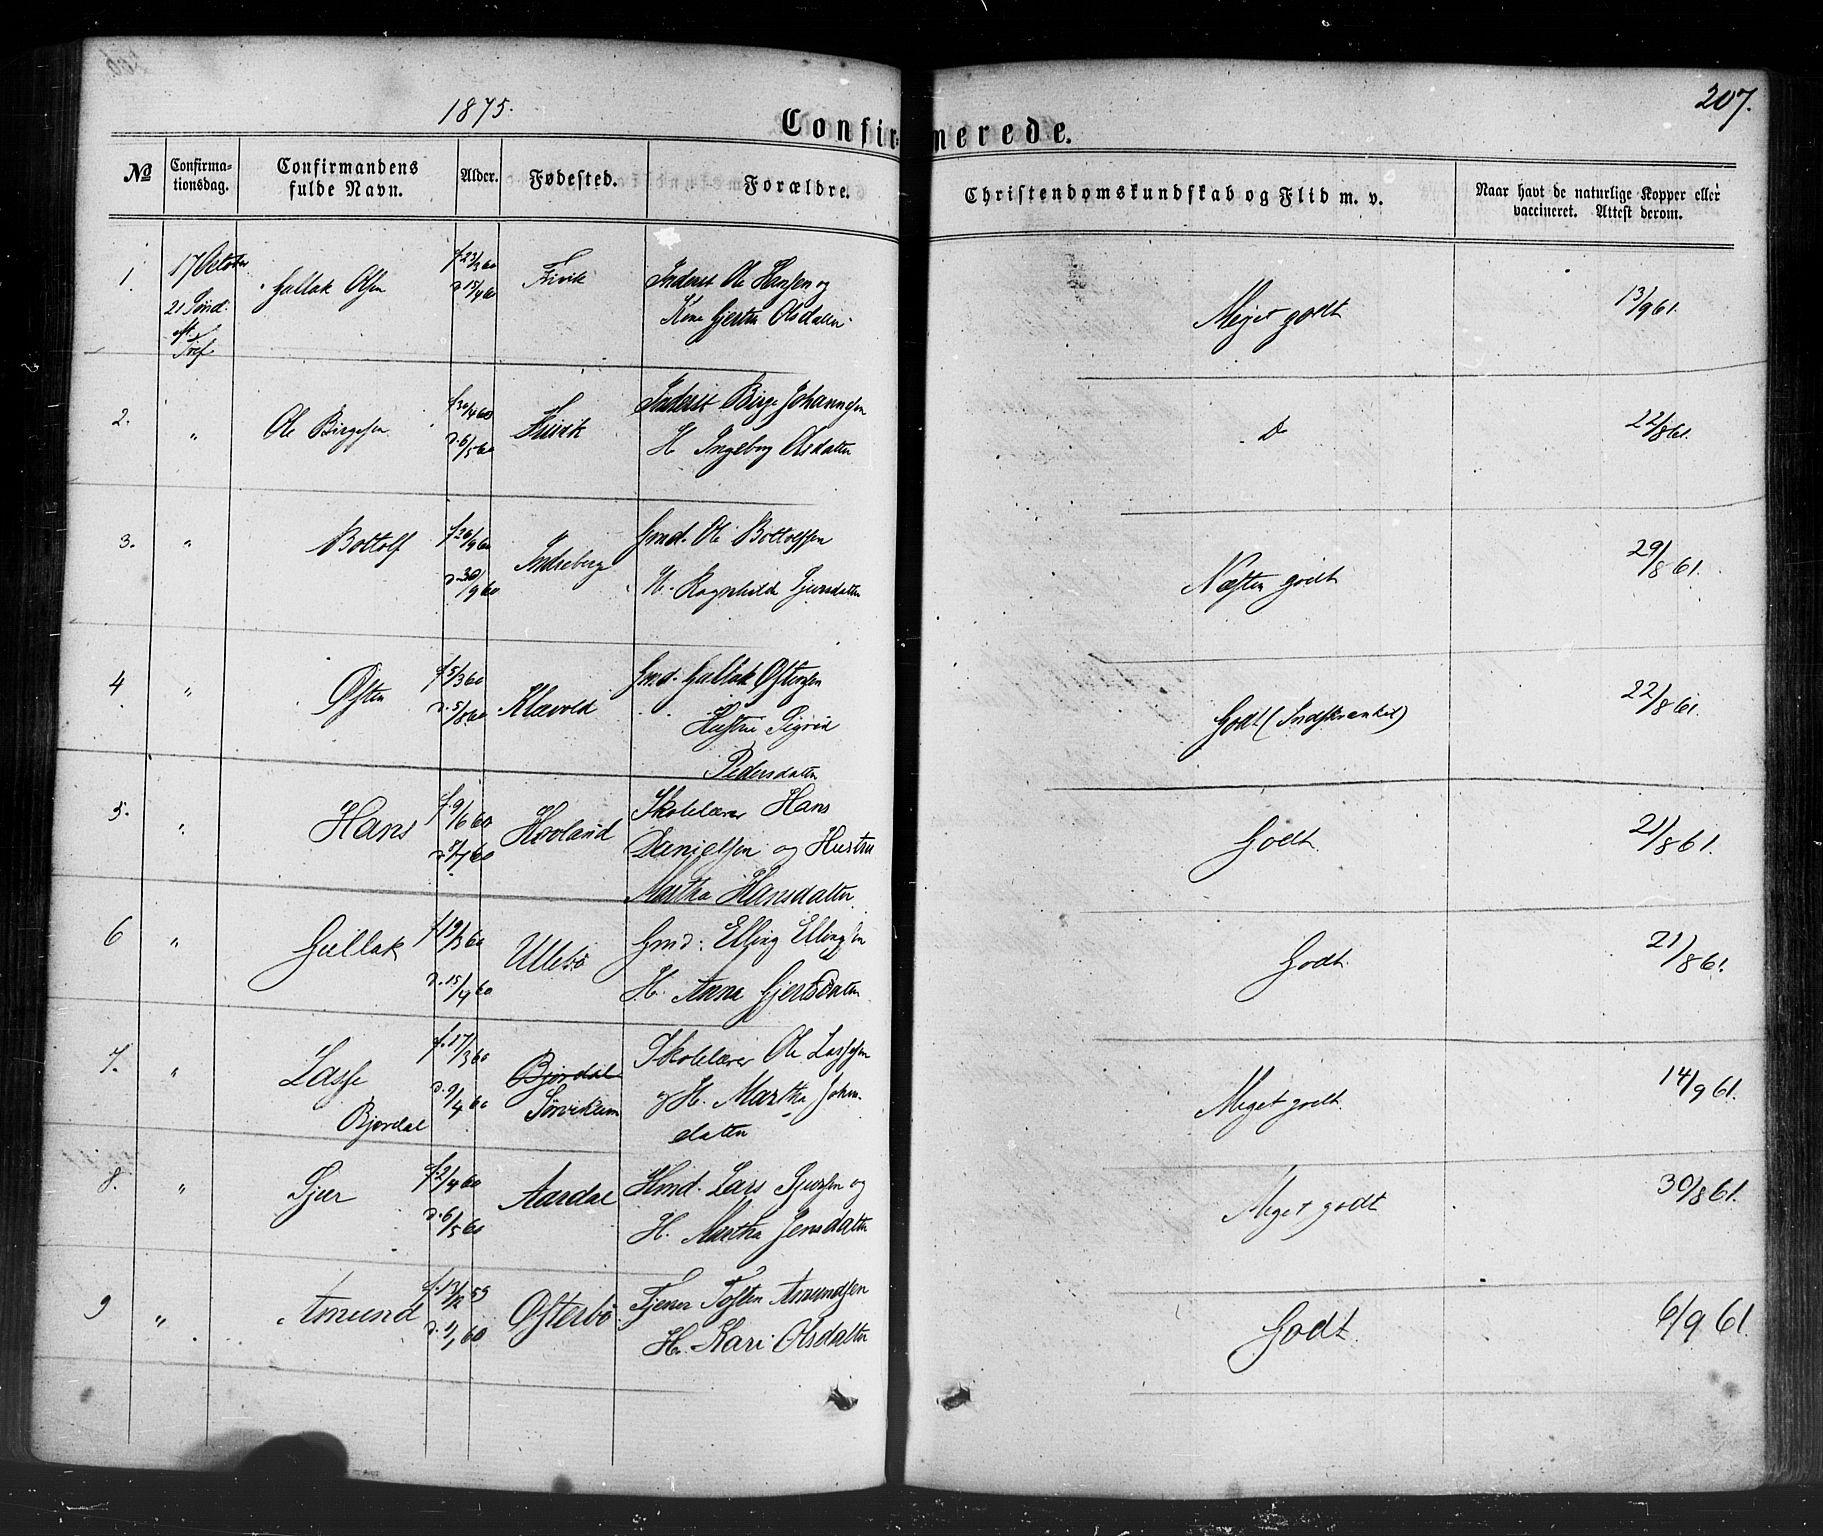 1875.
207.
Confirmerede.
No
Confirmationsdag.
Confirmandens fulde Navn.
Alder.
Fødested.
Forældre.
Christendomskundskab og Flid m. v.
Naar havt de naturlige Kopper eller vaccineret. Attest derom.
1. 17 October 21 Sønd. Tref
Gullak Olsen
f. 23/3 60
d. 15/4 60
Inderst Ole Hansen og
Kone Gjertru Olsdatter
Meget godt
13/9 61.
2. "
Ole Birgesen
f 30/4 60
d. 6/5 60
Inderst Birge Johannesen
H Ingeborg Olsdatter
Do
22/8 61.
3. "
Bottolf
f 20/9 60
d. 30/9 60
Indreberg
Gmd. Ole Bottolfsen
H. Ragnhilde Sjursdatter
Næsten godt
29/8 61.
4 "
Østen
f. 5/3 60
d. 5/8 60
Klævold
Gmd. Gullak Østensen
Hustru Sigrid
Pedersdatter
Godt (Indskrænket)
22/8 61.
5. "
Hans
f. 9/6 60
d. 8/7 60
Hovland
Skolelærer Hans
Danielsen og Hustru
Martha Hansdatter
Godt.
21/8 61.
6 "
Gullak
f 19/3 60
d. 15/4 60
Ullebø
Gmd: Elling Ellingsen
H. Anna Gjertsdatter
Godt.
21/8 61.
7. "
Lasse
Bjordal
f. 17/3 60
d. 9/4 60
Bjordal
Skolelærer Ole Lassesen
og H. Martha Johns-
datter
Meget godt.
14/9 61.
8. "
Sjur
f. 2/4 60
d. 6/5 60
Aardal
Hmd. Lars Sjursen og
H. Martha Jensdatter
Meget godt
30/8 61.
9 "
Amund
f. 13/12 59
d. 1/1 60
Østerbø
Tjener Tosten Amundsen
H. Kari Olsdatter
Godt.
6/9 61.